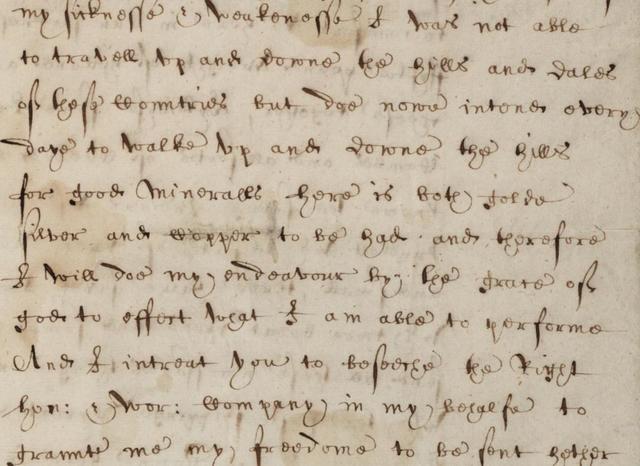 my sicknesse & weakenesse I was not able
to travell vp and downe the hills and dales
of these Countries but doe nowe intend every
daye to walke vp and downe the hills
for good Mineralls here is both golde
silver and Copper to be had and therefore
I will doe my endeavour by the grace of
god to effect what I am able to performe
And I intreat you to beseeche the Right
hon: & wor: Company in my behalfe to
graunte me my freedome to be sent hether